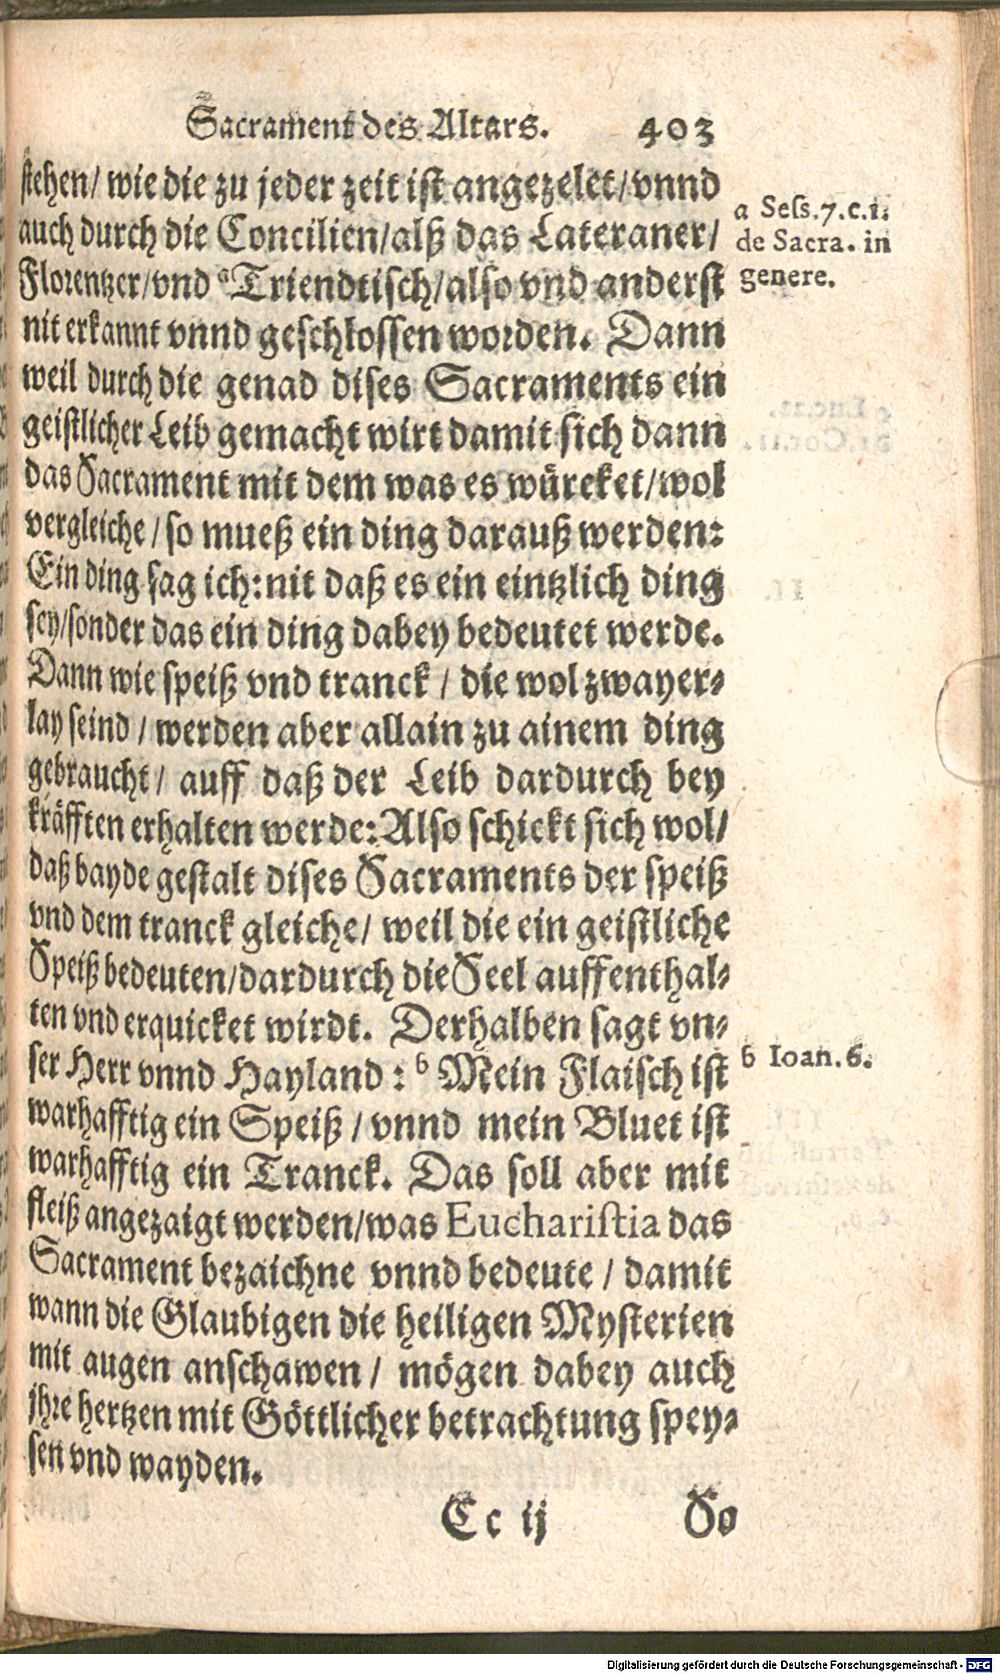 Sacrament des Altars. 403
stehen/ wie die zu jeder zeit ist angezelet/ vnnd
auch durch die Concilien/ alß das Lateraner/
Florentzer/ vnd ᵃTriendtisch/ also vnd anderst
nit erkannt vnnd geschlossen worden. Dann
weil durch die genad dises Sacraments ein
geistlicher Leib gemacht wirt damit sich dann
das Sacrament mit dem was es würcket/ wol
vergleiche/ so mueß ein ding darauß werden:
Ein ding sag ich: nit daß es ein eintzlich ding
sey/ sonder das ein ding dabey bedeutet werde.
Dann wie speiß vnd tranck / die wol zwayer⸗
lay seind / werden aber allain zu ainem ding
gebraucht / auff daß der Leib dardurch bey
kräfften erhalten werde: Also schickt sich wol/
daß bayde gestalt dises Sacraments der speiß
vnd dem tranck gleiche/ weil die ein geistliche
Speiß bedeuten/ dardurch die Seel auffenthal⸗
ten vnd erquicket wirdt. Derhalben sagt vn⸗
ser Herr vnnd Hayland : ᵇ Mein Flaisch ist
warhafftig ein Speiß / vnnd mein Bluet ist
warhafftig ein Tranck. Das soll aber mit
fleiß angezaigt werden/ was Eucharistia das
Sacrament bezaichne vnnd bedeute / damit
wann die Glaubigen die heiligen Mysterien
mit augen anschawen / mögen dabey auch
jhre hertzen mit Göttlicher betrachtung spey⸗
sen vnd wayden.
Cc ij So
a Sess.7.c.1.
de Sacra. in
genere.
b Ioan.6.
Digitalisierung gefördert durch die Deutsche Forschungsgemeinschaft - DFG